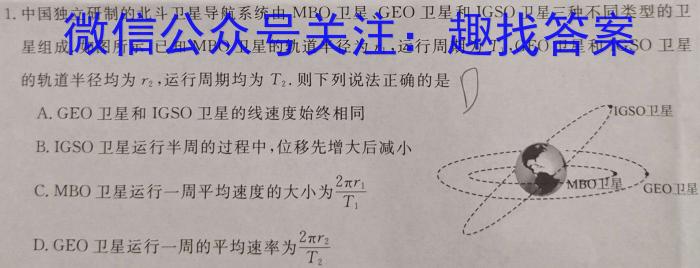 1.中国独立研制的北斗卫星导航系统由 MBO 卫星、GEO 卫星和 IGSO 卫星三种不同类型的卫
微信公众号关注：趣找答案
星组成,如图所示,已知MBO卫星的轨道半径为 运行周期为 GEO卫星和IGSO 卫星
的轨道半径均为 r₂,运行周期均为 T₂.则下列说法正确的是 D
A. GEO 卫星和 IGSO 卫星的线速度始终相同
B. IGSO 卫星运行半周的过程中,位移先增大后减小
C. MBO 卫星运行一周平均速度的大小为 2πr₁/T₁
D. GEO 卫星运行一周的平均速率为 2πr₂/T₂
IGSO卫星
MBO卫星
GEO卫星